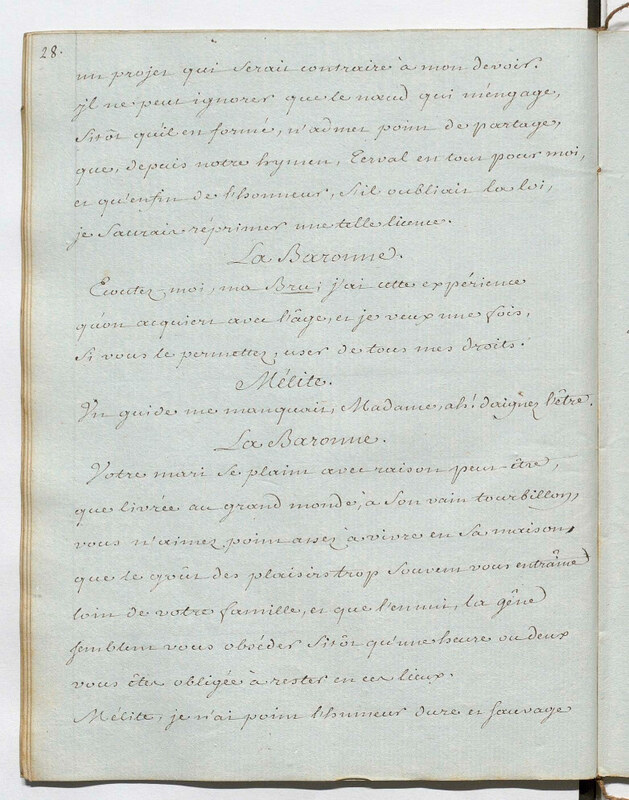 28.
un projet qui serait contraire à mon devoir.
il ne peut ignorer que le nœud qui m'engage,
Sitôt qu'il est formé, n'admet point de partage,
que, depuis notre hymen, Terval est tout pour moi,
et qu'enfin de l'honneur, s'il oubliait la loi,
je Saurais réprimer une telle licence.
La Baronne.
Ecoutez-moi, ma Bru; j'ai cette expérience
qu'on acquiert avec l'âge, et je veux une fois,
Si vous le permettez, user de tous mes droits.
Mélite.
Un guide me manquait, Madame, ah! daignez l'être.
La Baronne.
Votre mari Se plaint avec raison peut-être,
que livrée au grand monde, à Son vain tourbillon,
vous n'aimez point assez à vivre en Sa maison,
que le goût des plaisirs trop Souvent vous entraîne
loin de votre famille, et que l'ennui, la gêne
Semblent vous obséder Sitôt qu'une heure ou deux
vous êtes obligée à rester en ces lieux.
Mélite, je n'ai point l'humeur dure et Sauvage